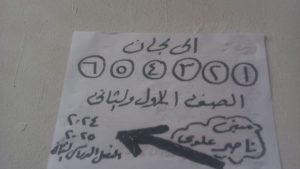 الى لجان
١ ٢ ٣ ٤ ٥ ٦
الصف الاول والثانى
مبنى
ناصر علوى
٢٠٢٤
٢٠٢٥
الفصل الدراسى الثانى